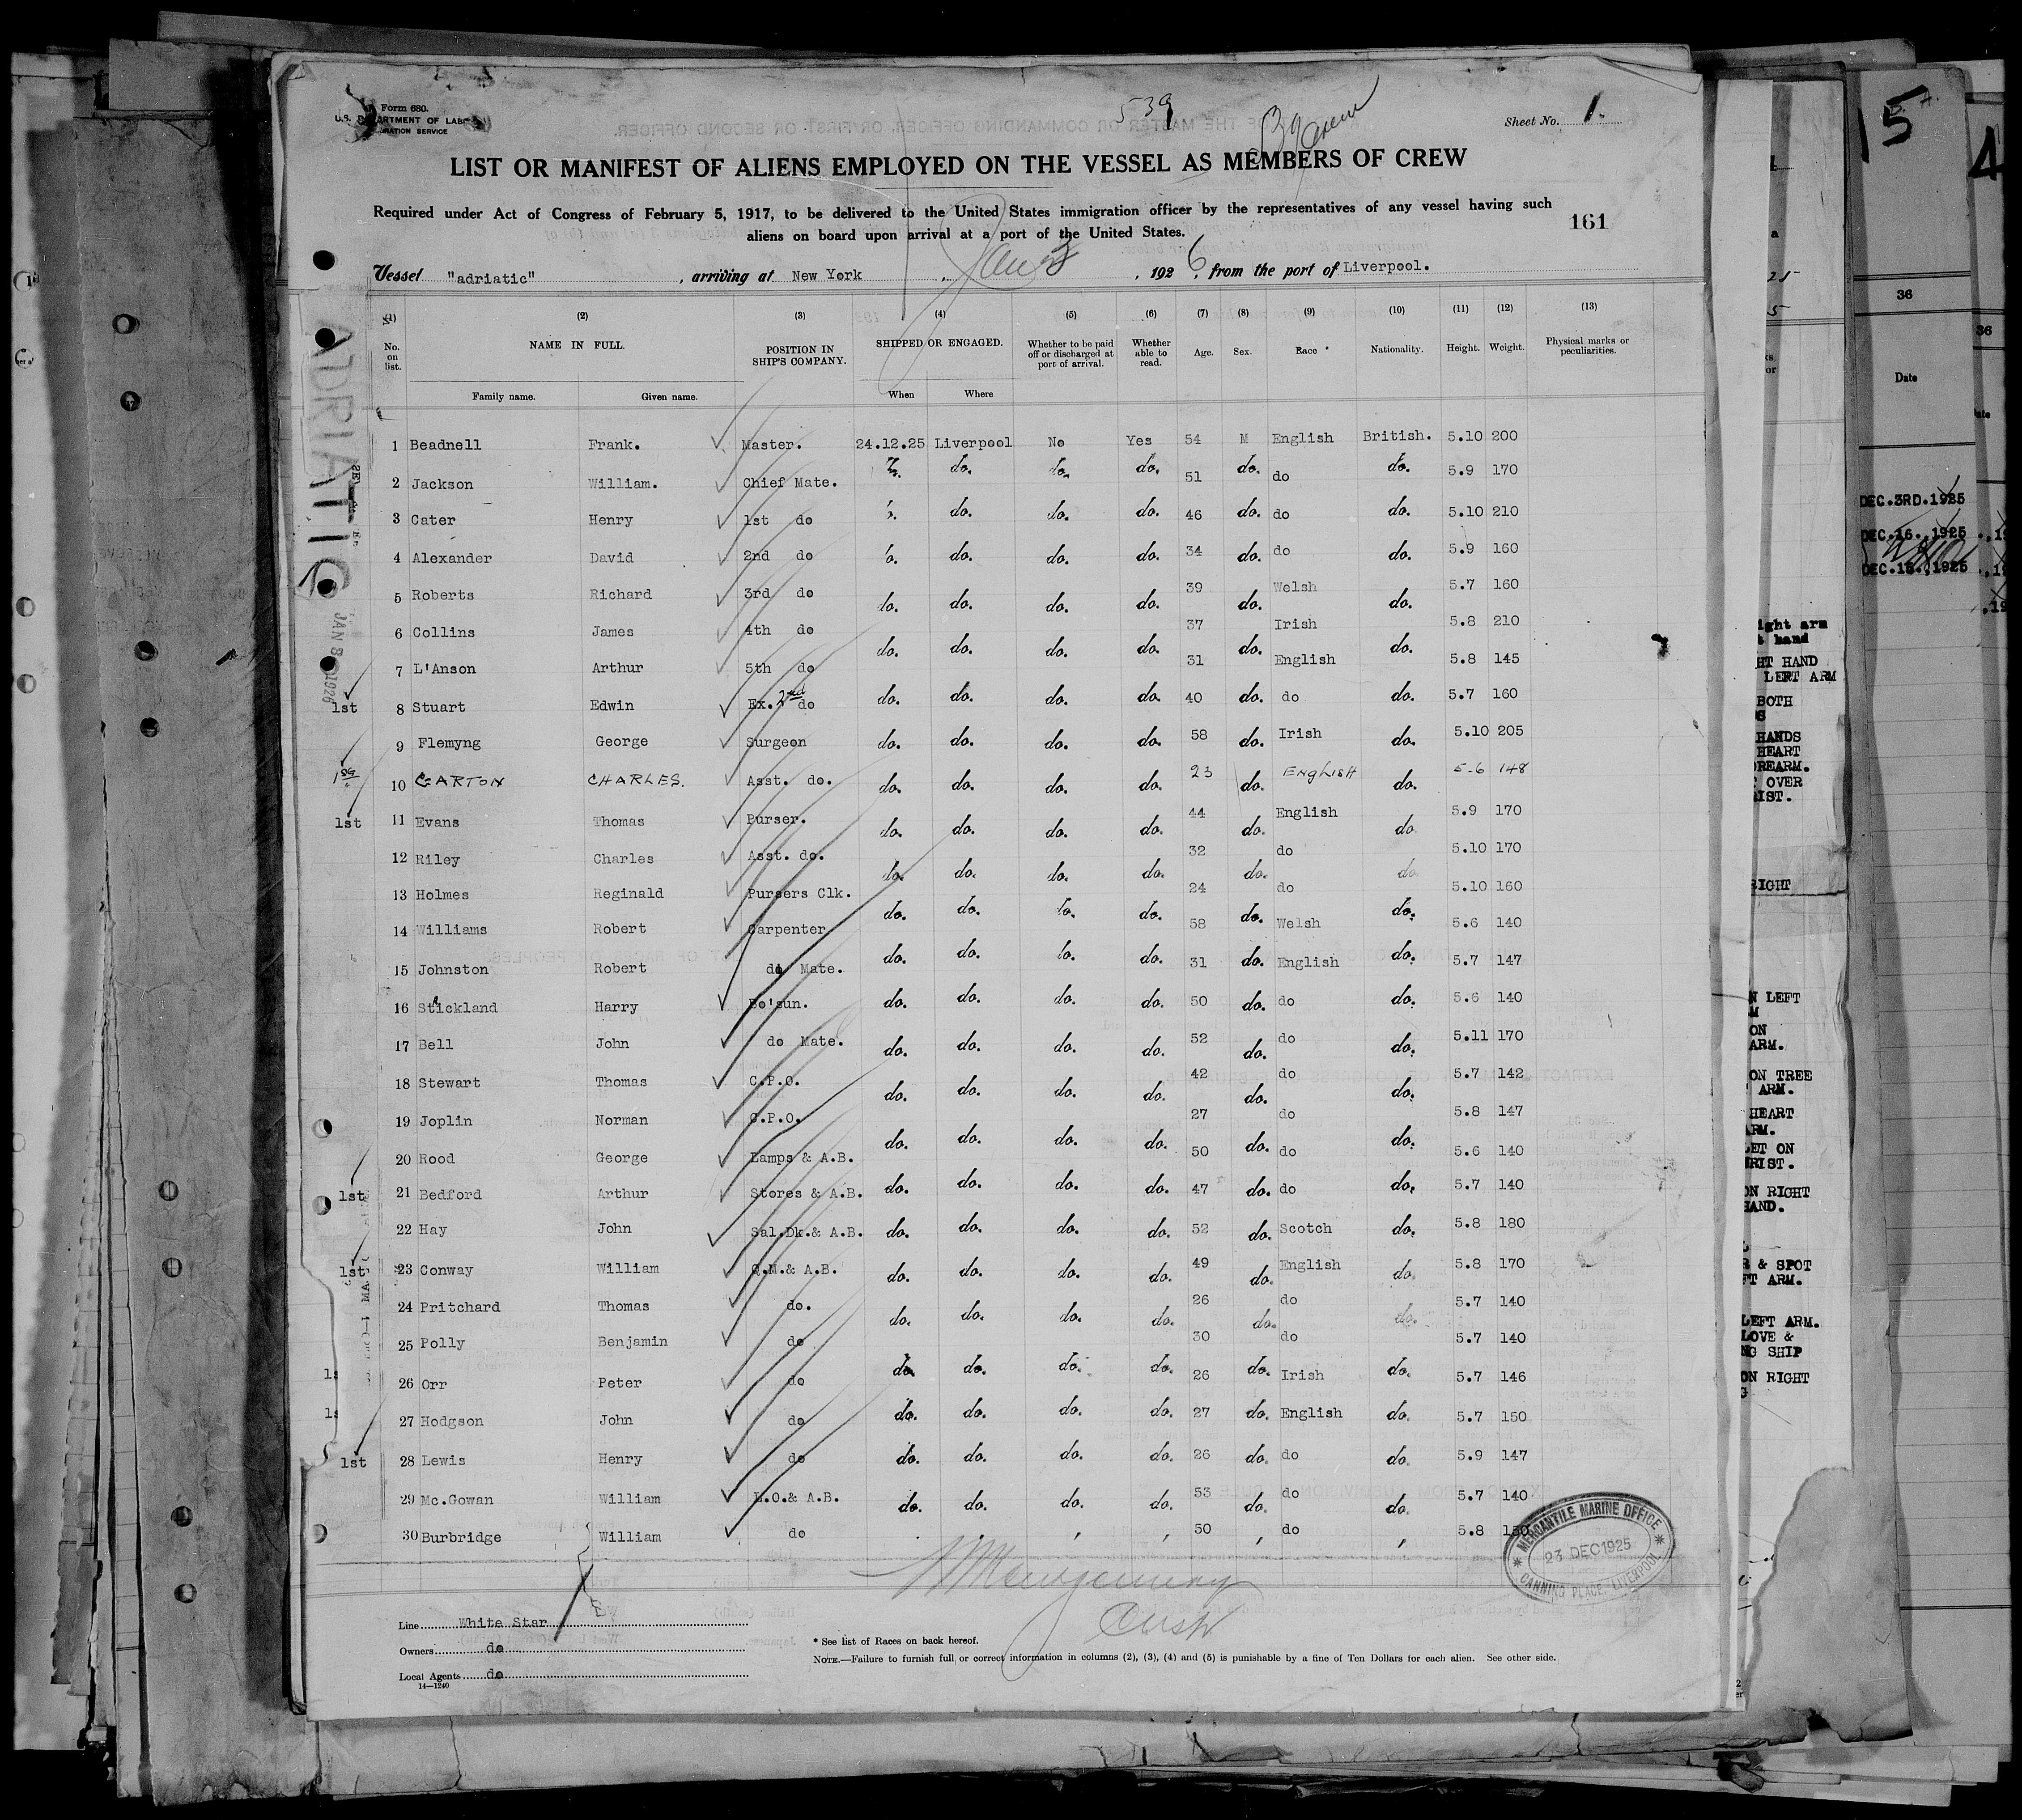 Form 680.
539
Sheet No. 1.
LIST OR MANIFEST OF ALIENS EMPLOYED ON THE VESSEL AS MEMBERS OF CREW
Required under Act of Congress of February 5, 1917, to be delivered to the United States immigration officer by the representatives of any vessel having such
aliens on board upon arrival at a port of the United States.
161
Vessel "adriatic", arriving at New York, Jan 3, 1926, from the port of Liverpool.
(1) (2) (3) (4) (5) (6) (7) (8) (9) (10) (11) (12) (13)
No. on list. NAME IN FULL. POSITION IN SHIP'S COMPANY. SHIPPED OR ENGAGED. Whether to be paid off or discharged at port of arrival. Whether able to read. Age. Sex. Race * Nationality. Height. Weight. Physical marks or peculiarities.
Family name. Given name. When Where
1 Beadnell Frank. Master. 24.12.25 Liverpool No Yes 54 M English British. 5.10 200
2 Jackson William. Chief Mate. do. do. do. 51 do. do do. 5.9 170
3 Cater Henry 1st do do. do. do. 46 do. do do. 5.10 210
4 Alexander David 2nd do do. do. do. 34 do. do do. 5.9 160
5 Roberts Richard 3rd do do. do. do. do. 39 do. Welsh do. 5.7 160
6 Collins James 4th do do. do. do. do. 37 do. Irish do. 5.8 210
7 L'Anson Arthur 5th do 31 English 5.8 145
1st 8 Stuart Edwin Ex. 2nd do do. do. do. do. 40 do. do do. 5.7 160
9 Flemyng George Surgeon do. do. do. do. 58 do. Irish do. 5.10 205
1st 10 GARTON CHARLES. Asst. do. do. do. do. do. 23 do. ENGLISH do. 5.6 148
1st 11 Evans Thomas Purser. do. do. do. do. 44 do. English do. 5.9 170
12 Riley Charles Asst. do. do. do. do. do. 32 do. do do 5.10 170
13 Holmes Reginald Pursers Clk. do. do. do. do. 24 do. do do. 5.10 160
14 Williams Robert Carpenter do. do. do. do. 58 do. Welsh do. 5.6 140
15 Johnston Robert do Mate. 31 English 5.7 147
16 Stickland Harry Bo'sun. do. do. do. do. 50 do. do do. 5.6 140
17 Bell John do Mate. do. do. do. do. 52 do. do do. 5.11 170
18 Stewart Thomas C.P.O. do. do. do. do. 42 do. do do. 5.7 142
19 Joplin Norman C.P.O. do. do. do. do. 27 do. do do. 5.8 147
20 Rood George Lamps & A.B. 50 do 5.6 140
1st 21 Bedford Arthur Stores & A.B. do. do. do. do. 47 do. do do. 5.7 140
22 Hay John Sal.Dk.& A.B. do. do. do. do. 52 do. Scotch do. 5.8 180
1st 23 Conway William Q.M.& A.B. do. do. do. do. 49 do. English do. 5.8 170
24 Pritchard Thomas do. do. do. do. do. 26 do. do do. 5.7 140
25 Polly Benjamin do 30 do 5.7 140
26 Orr Peter do do. do. do. do. 26 do. Irish do. 5.7 146
27 Hodgson John do do. do. do. do. 27 do. English do. 5.7 150
1st 28 Lewis Henry do do. do. do. do. 26 do. do do. 5.9 147
29 Mc.Gowan William L.O.& A.B. do. do. do. do. 53 do. do do. 5.7 140
30 Burbridge William do 50 do 5.8 150
MERCANTILE MARINE OFFICE
23 DEC 1925
CANNING PLACE, LIVERPOOL
Line White Star
Owners do
Local Agents do
14—1240
* See list of Races on back hereof.
NOTE.—Failure to furnish full or correct information in columns (2), (3), (4) and (5) is punishable by a fine of Ten Dollars for each alien. See other side.
ADRIATIC
JAN 3 1926
15
4
36
36
Date
DEC.3RD.1925
DEC.16.,1925
DEC.18.,1925